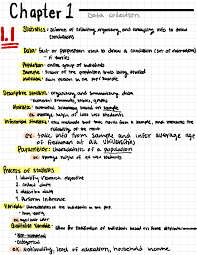 Chapter 1 - Data Collection
1.1
Statistics - science of collecting, organizing, and analyzing info to draw
conclusions
Data - fact or proposition used to draw a conclusion (set of information)
Population - entire group of individuals
Sample - subset of the population being studied
Individual - each person in the
Descriptive statistics - organizing and summarizing data
numerical summaries, tables, graphs
Statistic - numerical summary based on sample
ex: average height of 100 USF students
Inferential Statistics - uses methods that take results from a sample, and measures the
reliability of the result
ex: take info from sample and infer average age
of freshman at all universities
Parameter - characteristic of a population
ex: average height of all USF students
Process of Statistics
1. identify research objective
2. collect data
3. describe data
4. perform inference
Variable - characteristics of the individuals in the pop.
Qualitative Variable - allow for classification of individuals based on some attribute
Non-numerical
Categorical
ex: nationality, level of education, household income